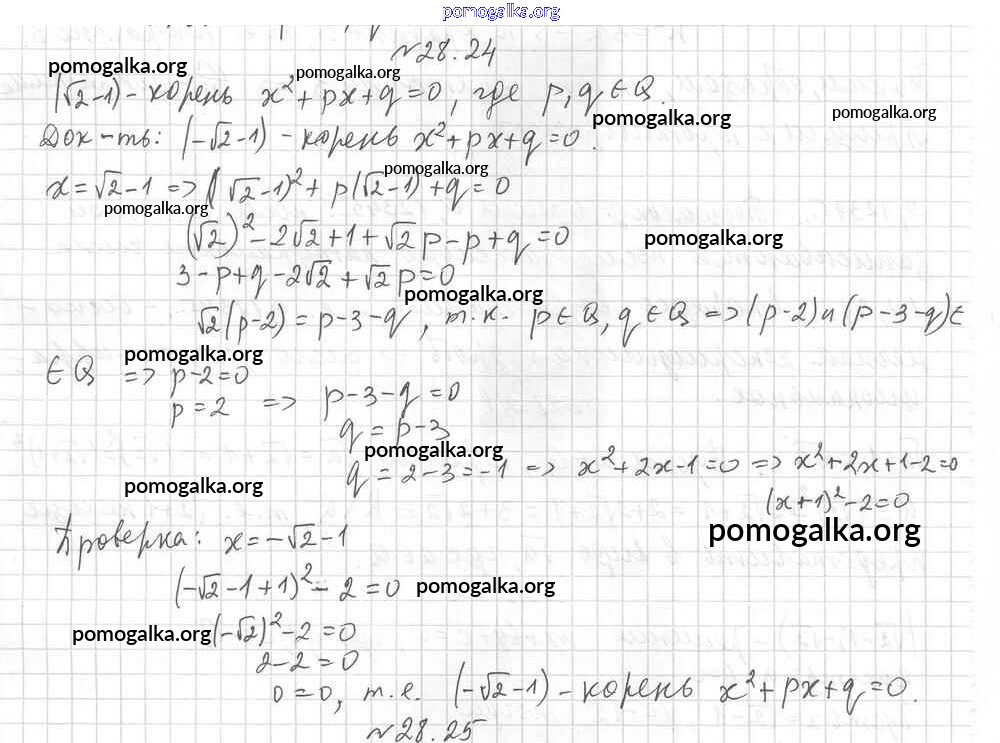 pomogalka.org
№28.24
pomogalka.org
pomogalka.org
(√2-1)-корень x²+px+q=0, где p,q∈Q.
pomogalka.org
pomogalka.org
Док-ть: (-√2-1)-корень x²+px+q=0.
pomogalka.org
x=√2-1 => (√2-1)²+p(√2-1)+q=0
pomogalka.org
(√2)²-2√2+1+√2p-p+q=0
pomogalka.org
3-p+q-2√2+√2p=0
pomogalka.org
√2(p-2)=p-3-q, т.к. p∈Q, q∈Q => (p-2) и (p-3-q)∈
pomogalka.org
∈Q => p-2=0
p=2 => p-3-q=0
q=p-3
pomogalka.org
q=2-3=-1 => x²+2x-1=0 => x²+2x+1-2=0
pomogalka.org
(x+1)²-2=0
pomogalka.org
Проверка: x=-√2-1
(-√2-1+1)²-2=0
pomogalka.org
pomogalka.org
(-√2)²-2=0
2-2=0
0=0, т.е. (-√2-1)-корень x²+px+q=0.
№28.25